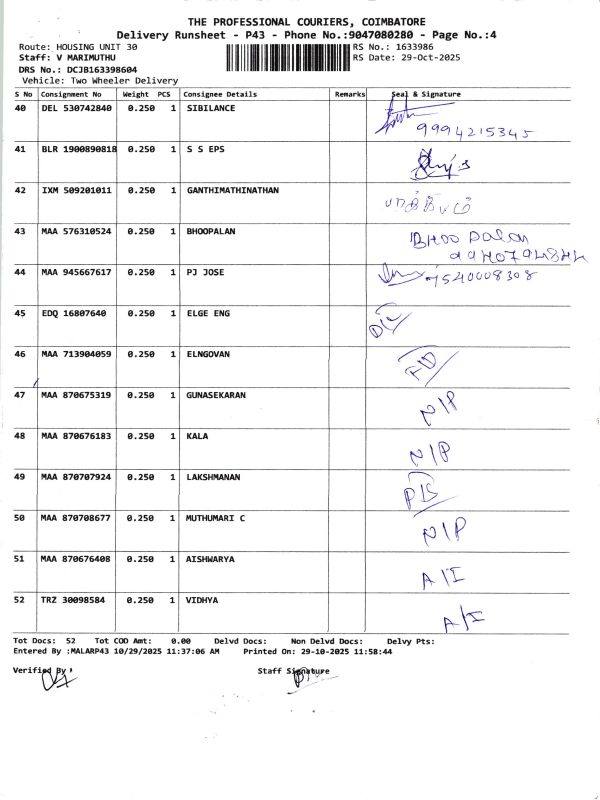 THE PROFESSIONAL COURIERS, COIMBATORE
Delivery Runsheet - P43 - Phone No.:9047080280 - Page No.:4
Route: HOUSING UNIT 30 RS No.: 1633986
Staff: V MARIMUTHU RS Date: 29-Oct-2025
DRS No.: DCJB163398604
Vehicle: Two Wheeler Delivery
S No Consignment No Weight PCS Consignee Details Remarks Seal & Signature
40 DEL 530742840 0.250 1 SIBILANCE
9994215345
41 BLR 1900890818 0.250 1 S S EPS
42 IXM 509201011 0.250 1 GANTHIMATHINATHAN
43 MAA 576310524 0.250 1 BHOOPALAN BHOO PALAN
44 MAA 945667617 0.250 1 PJ JOSE 7540008308
45 EDQ 16807640 0.250 1 ELGE ENG
46 MAA 713904059 0.250 1 ELNGOVAN
47 MAA 870675319 0.250 1 GUNASEKARAN N/P
48 MAA 870676183 0.250 1 KALA N/P
49 MAA 870707924 0.250 1 LAKSHMANAN
50 MAA 870708677 0.250 1 MUTHUMARI C N/P
51 MAA 870676408 0.250 1 AISHWARYA A/I
52 TRZ 30098584 0.250 1 VIDHYA A/I
Tot Docs: 52 Tot COD Amt: 0.00 Delvd Docs: Non Delvd Docs: Delvy Pts:
Entered By :MALARP43 10/29/2025 11:37:06 AM Printed On: 29-10-2025 11:58:44
Verified By Staff Signature